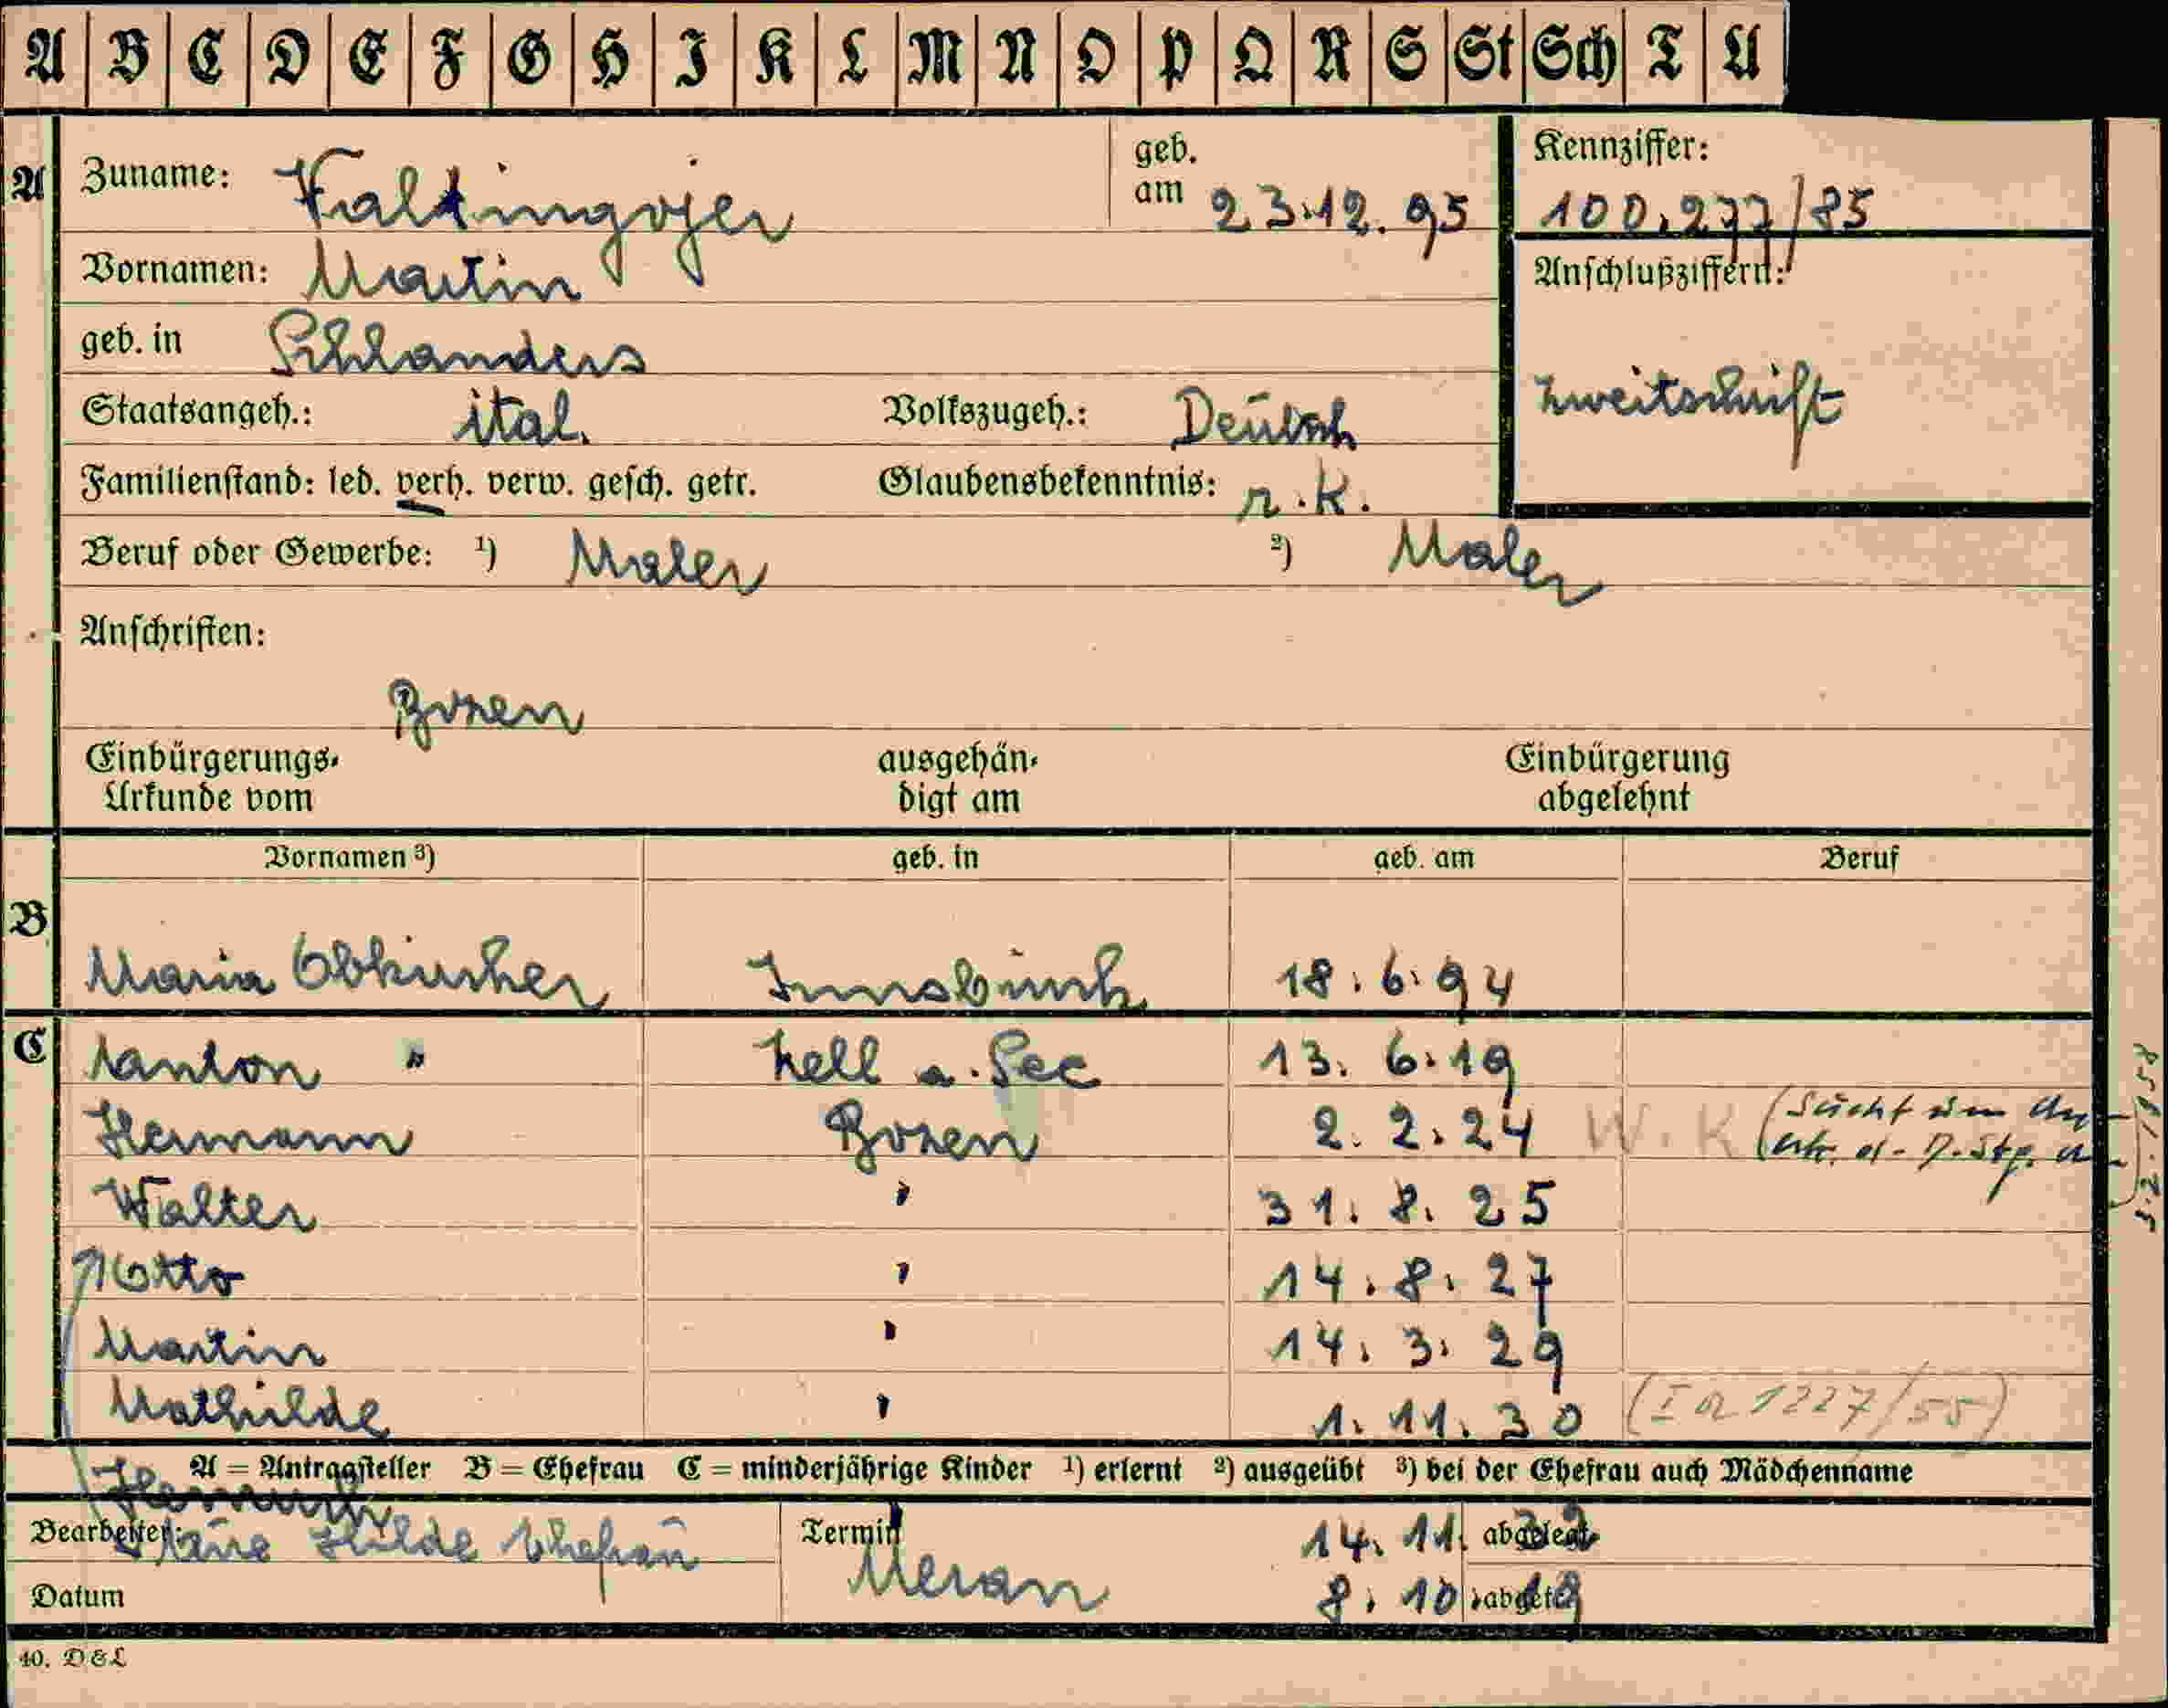 A B C D E F G H I K L M N O P Q R S St Sch T U
A Zuname: Valtingojer geb. am 23.12.95 Kennziffer: 100.277/85
Vornamen: Martin Anschlußziffern:
geb. in Schlanders
Zweitschrift
Staatsangeh.: ital. Volkszugeh.: Deutsch
Familienstand: led. verh. verw. gesch. getr. Glaubensbekenntnis: r.k.
Beruf oder Gewerbe: 1) Maler 2) Maler
Anschriften:
Bozen
Einbürgerungs- ausgehän- Einbürgerung
Urkunde vom digt am abgelehnt
Vornamen 3) geb. in geb. am Beruf
B
Maria Obkircher Innsbruck 18.6.94
C " Zell a. See 13. 6. 19
Hermann Bozen 2. 2. 24 W. K (Sucht um
Walter " 31. 8. 25
Otto " 14. 8. 27
Martin " 14. 3. 29
Mathilde " 1. 11. 30 (1227/55)
A = Antragsteller B = Ehefrau C = minderjährige Kinder 1) erlernt 2) ausgeübt 3) bei der Ehefrau auch Mädchenname
Bearbeiter: Hilde Ehefrau Termin 14. 11. abgelegt
Meran
Datum 8. 10. 19
40. D&L
5.2.1958